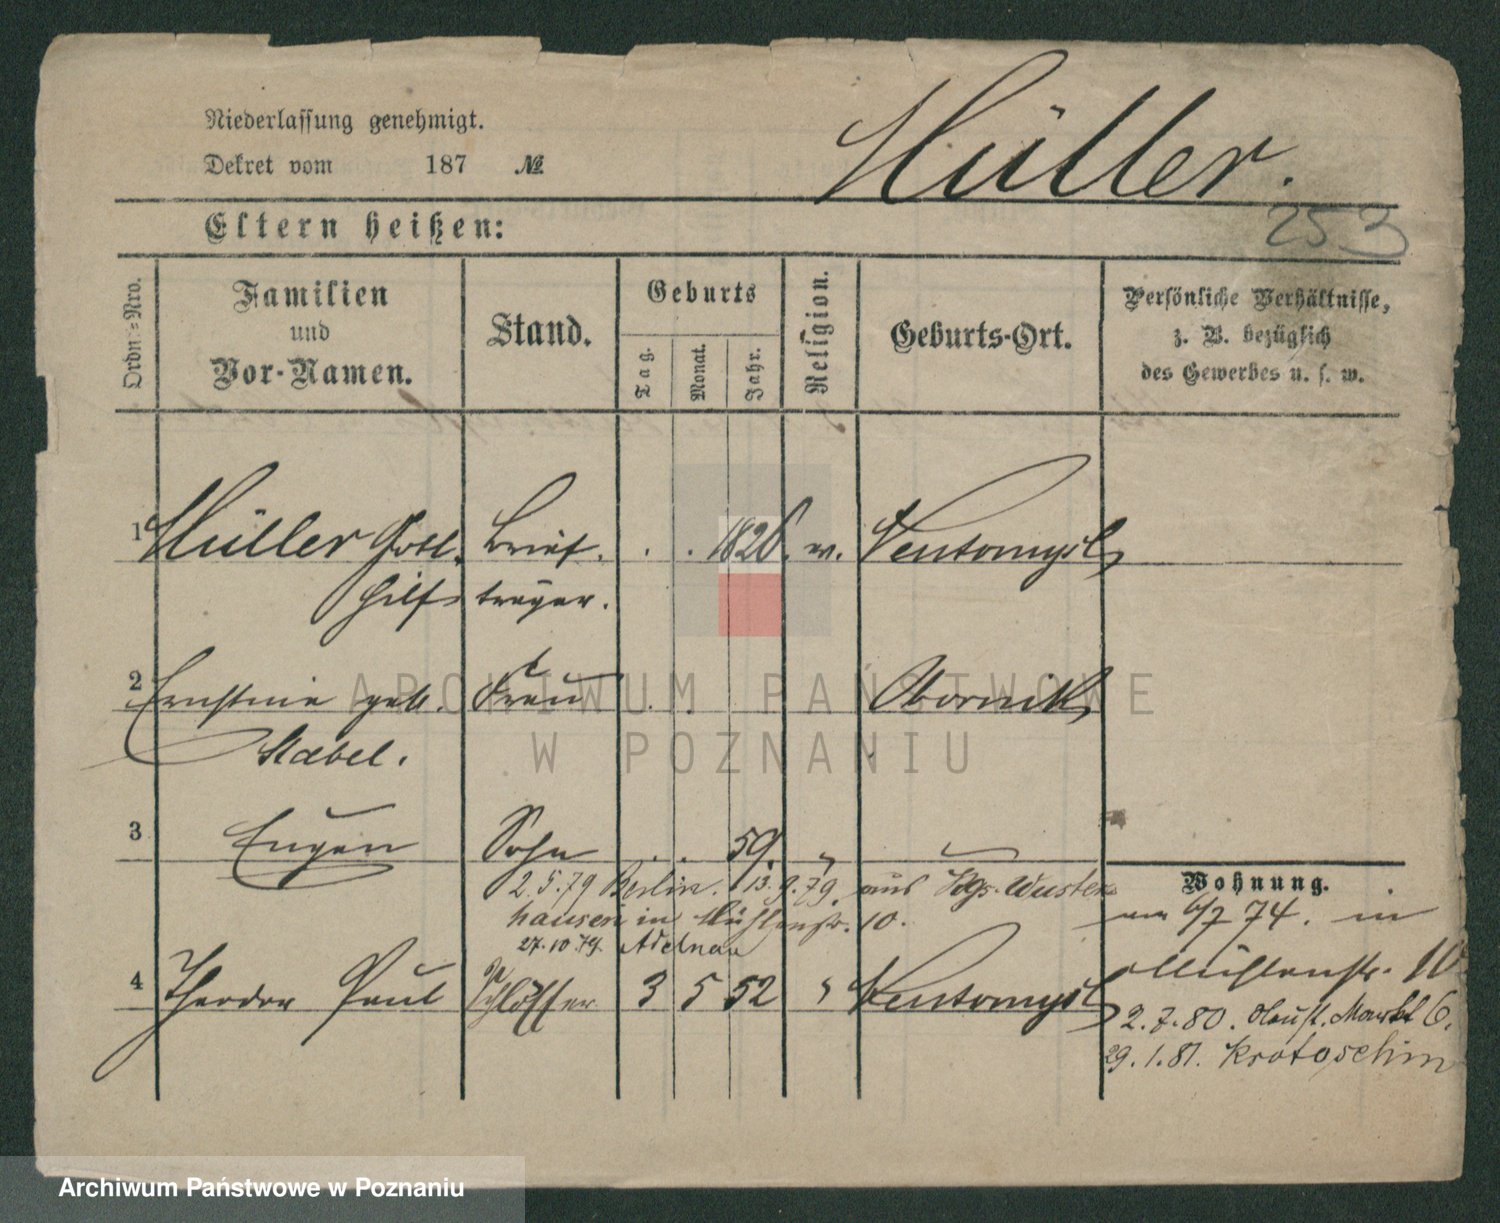 Niederlassung genehmigt.
Dekret vom 187 №
Müller.
253
Eltern heißen:
Ordn.=Nro.
Familien
und
Vor-Namen.
Stand.
Geburts
Tag.
Monat.
Jahr.
Religion.
Geburts-Ort.
Persönliche Verhältnisse,
z. B. bezüglich
des Gewerbes u. s. w.
1 Müller Gott- Brief- . . 1826. w. Neutomysl
hilf träger.
2 Ernstine geb. Frau . . Obornik
Stabel.
3 Eugen Sohn . . 59. "
2.5.79 Berlin. 13.9.79. aus Kgs. Wuster
hausen in Mühlenstr. 10.
27.10.79. Adelnau
4 Theodor Paul Schlosser 3 5 52 " Neutomysl
Wohnung.
6/7 74. in
Mühlenstr. 10
2.7.80. Neust. Markt 6.
29.1.81. Krotoschin
ARCHIWUM PAŃSTWOWE
W POZNANIU
Archiwum Państwowe w Poznaniu